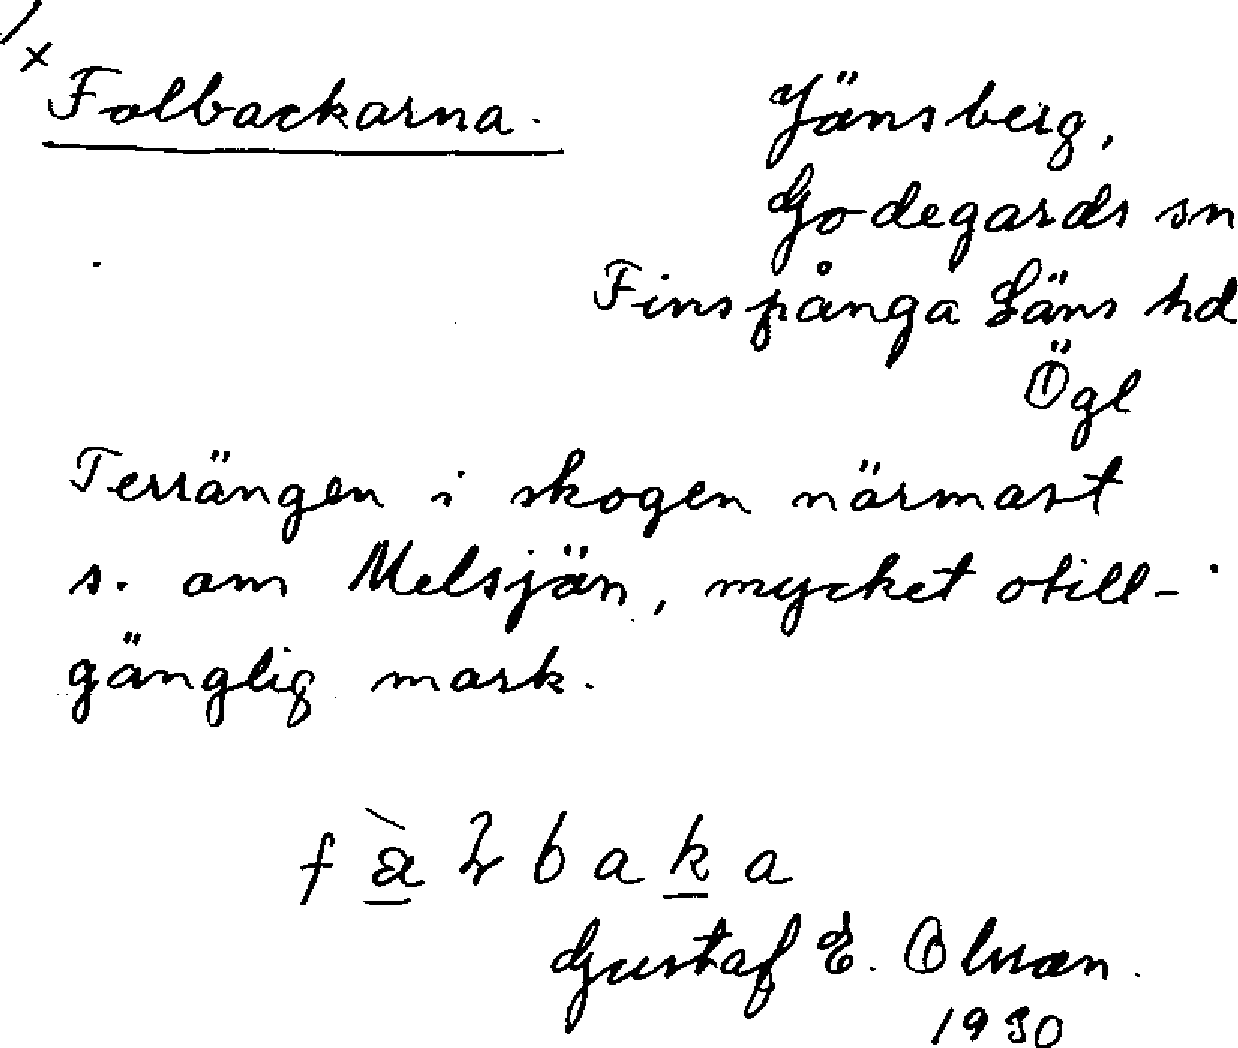 Falbackarna.
Jönsberg,
Godegards sn
Finspånga Läns hd
Ögl
Terrängen i skogen närmast
s. om Melsjön, mycket otill-
gänglig mark.
Gustaf E. Olsson.
1930